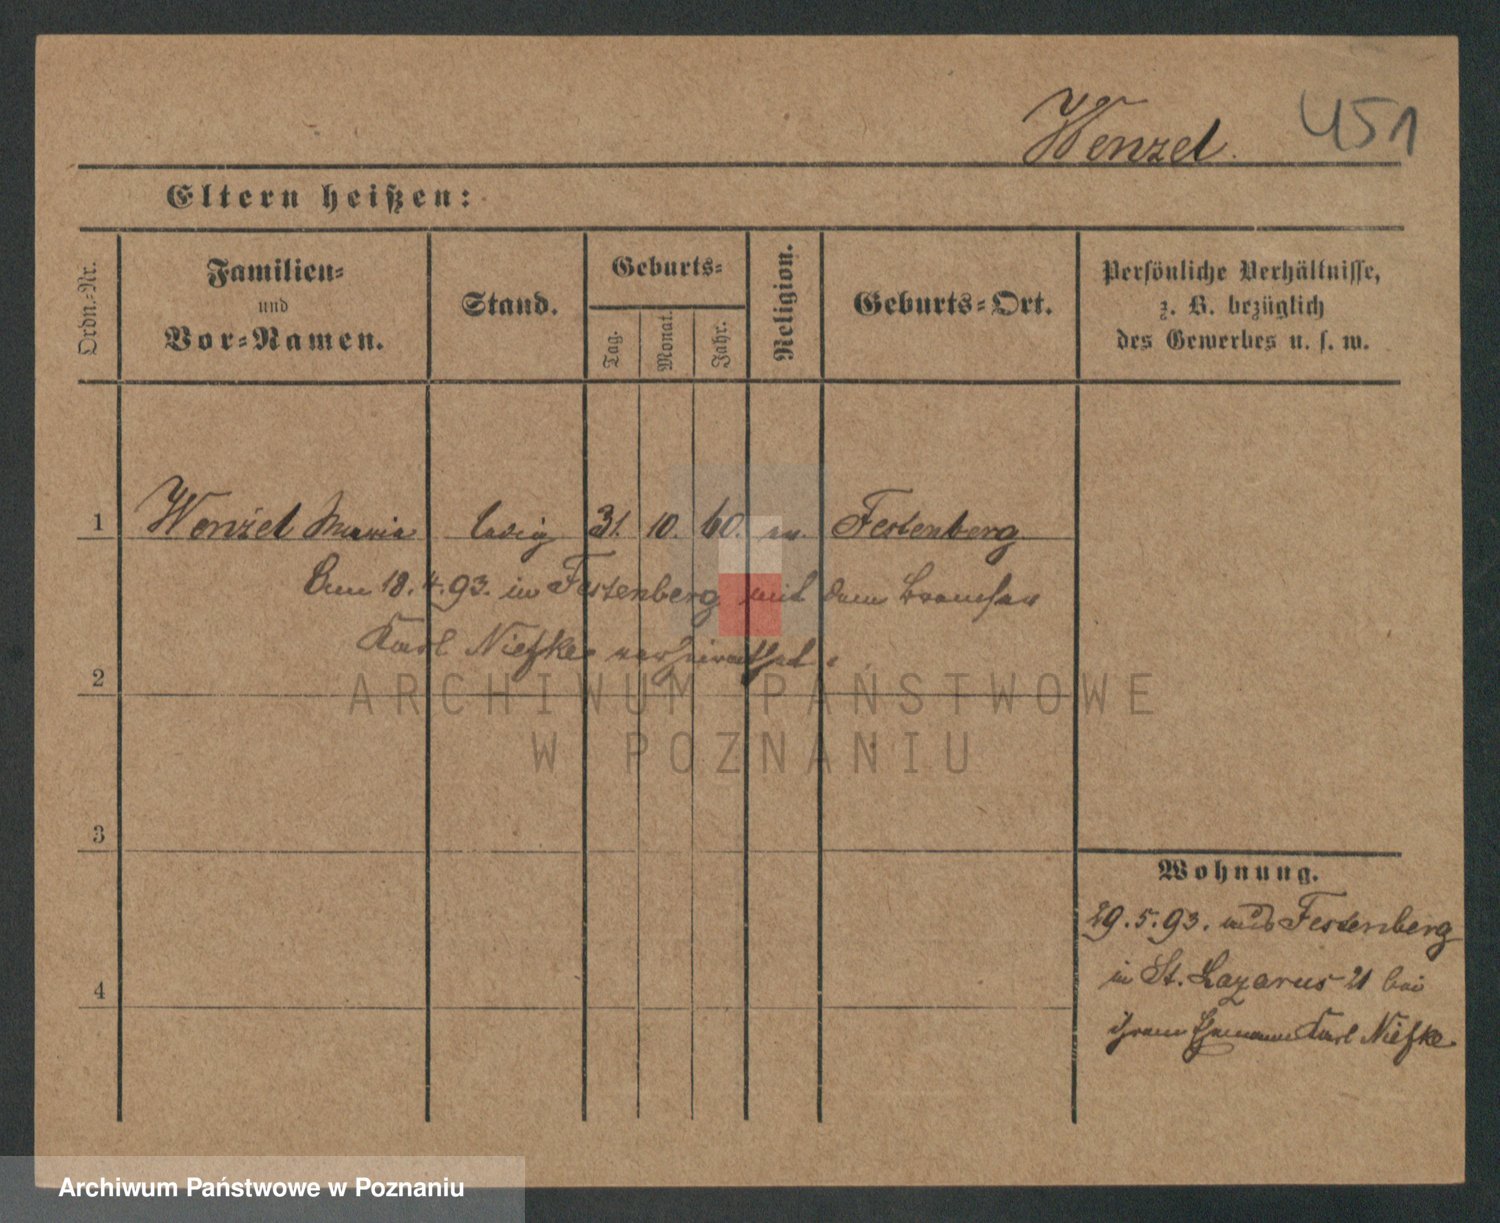 Wenzel. 451
Eltern heißen:
Ordn.-Nr.
Familien-
und
Vor-Namen.
Stand.
Geburts-
Tag.
Monat.
Jahr.
Religion.
Geburts-Ort.
Persönliche Verhältnisse,
z. B. bezüglich
des Gewerbes u. s. w.
1 Wenzel Maria ledig 31. 10. 60. ev. Festenberg
Am 18.4.93. in Festenberg mit dem
Karl Niefke verheirathet.
2
3
4
Wohnung.
29.5.93. aus Festenberg
in St. Lazarus 21 bei
ihrem Ehemann Karl Niefke.
ARCHIWUM PAŃSTWOWE
W POZNANIU
Archiwum Państwowe w Poznaniu